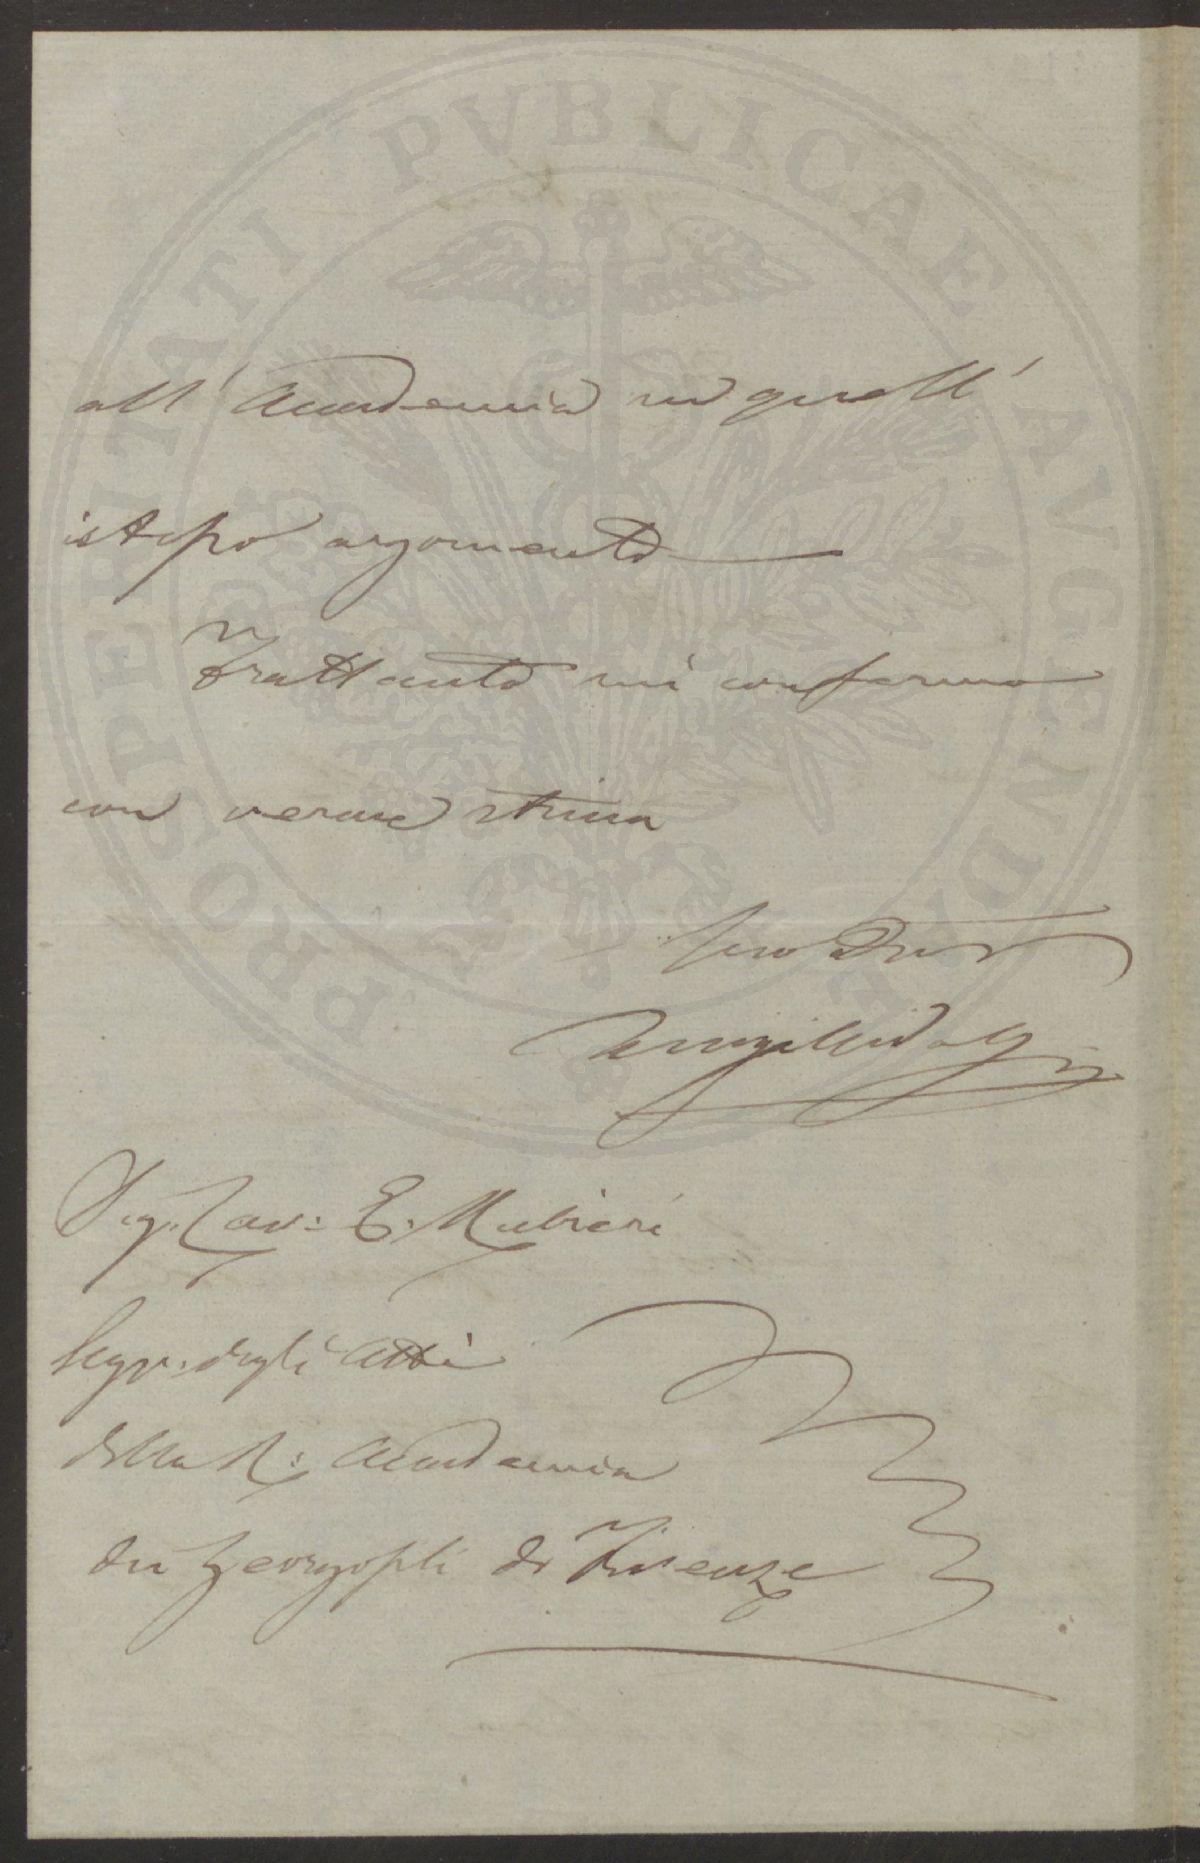 PROSPERITATI PVBLICAE AVGENDAE
all' Accademia su quell'
istesso argomento
Frattanto mi confermo
con verace stima
Suo Dev
Sig. Cav: E. Rubieri
Segr. degli Atti
della R: Accademia
dei Georgofili di Firenze